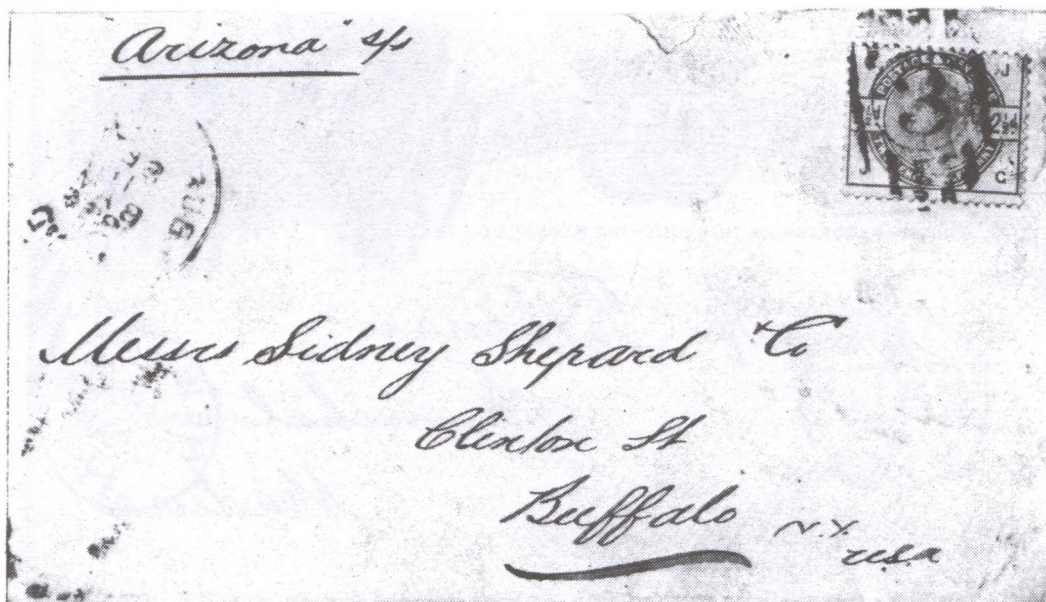 Arizona s/s
POSTAGE &
3
2½d
J
J
G
Messrs Sidney Shepard & Co
Clinton St
Buffalo N.Y.
U.S.A